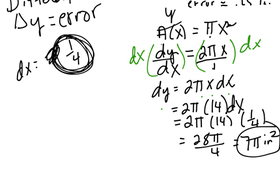 Δy = error
dx = 1/4
y
A(x) = πx²
dx (dy/dx) = (2πx/1) dx
dy = 2πx dx
= 2π(14)dx
= 2π(14)(1/4)
= 28π/4 = 7π in²